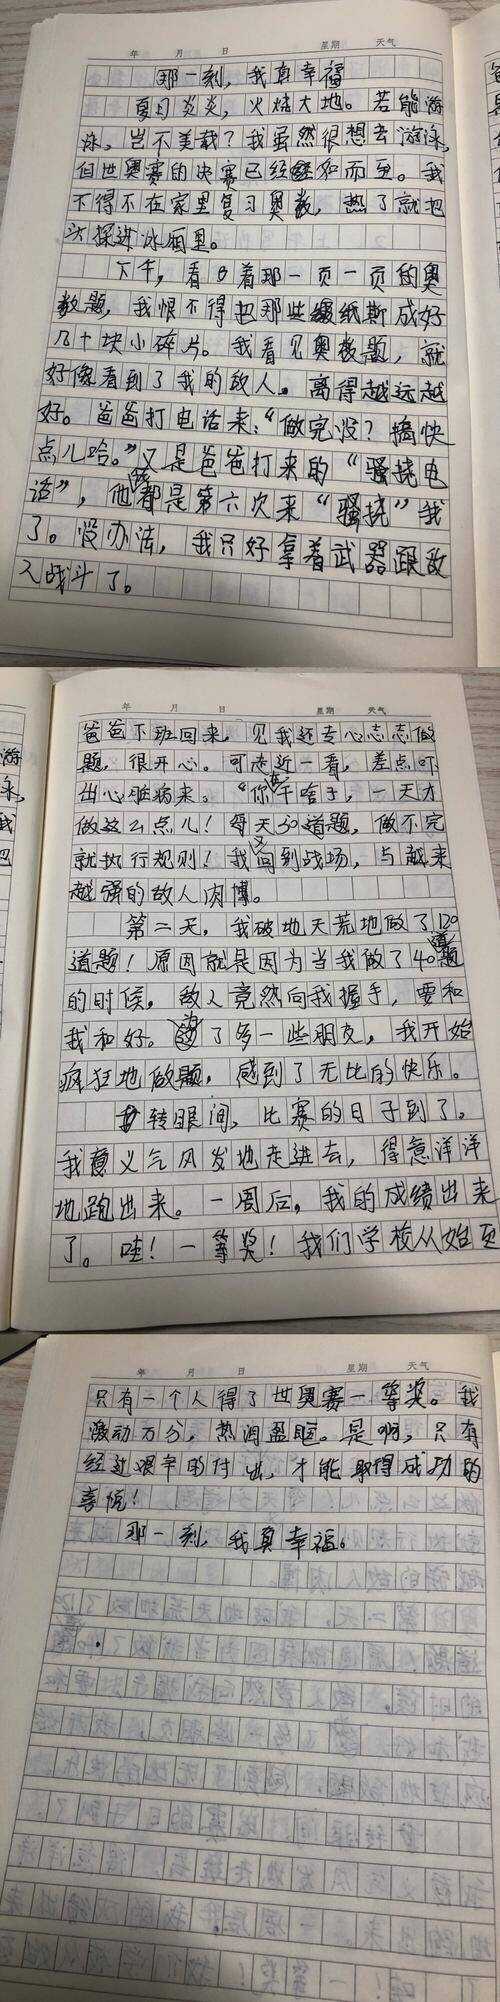 年 月 日 星期 天气
那一刻，我真幸福
夏日炎炎，火烧大地。若能游
泳，岂不美哉？我虽然很想去游泳，
但世奥赛的决赛已经如和而至。我
不得不在家里复习奥数，热了就把
头探进冰箱里。
下午，看着那一页一页的奥
数题，我恨不得把那些纸撕成好
几十块小碎片。我看见奥数题，就
好像看到了我的敌人。离得越远越
好。爸爸打电话来：“做完没？搞快
点儿哈。”又是爸爸打来的“骚挠电
话”，他都是第六次来“骚挠”我
了。没办法，我只好拿着武器跟敌
人战斗了。
年 月 日 星期 天气
爸爸下班回来，见我还专心志志做
题，很开心。可走近一看，差点吓
出心脏病来。“你在干啥子，一天才
做这么点儿！每天30道题，做不完
就执行规则！我又回到战场，与越来
越强的敌人肉博。
第二天，我破地天荒地做了120
道题！原因就是因为当我做了40道题
的时候，敌人竟然向我握手，要和
我和好。了多一些朋友，我开始
疯狂地做题，感到了无比的快乐。
转眼间，比赛的日子到了。
我意义气风发地走进去，得意洋洋
地跑出来。一周后，我的成绩出来
了。哇！一等奖！我们学校从始页
年 月 日 星期 天气
只有一个人得了世奥赛一等奖。我
激动万分，热泪盈眶。是啊，只有
经过艰辛的付出，才能取得成功的
喜悦！
那一刻，我真幸福。